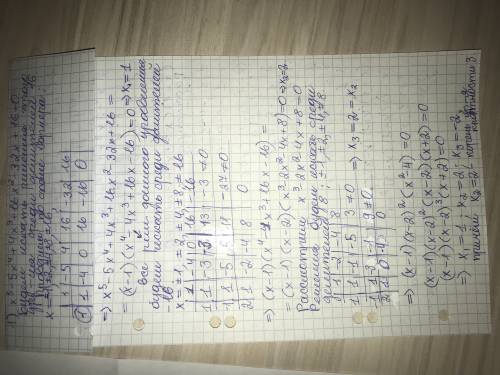 1) x⁵-5x⁴+4x³+16x²-32x+16=0
будем искать решения этого
ур-я среди делителей 16
x=±1±2±4±8±16
1 -5 4 16 -32 16
1 1 -4 0 16 -16 0
⇒ x⁵-5x⁴+4x³+16x²-32x+16=
=(x-1)(x⁴-4x³+16x-16)=0 ⇒ x₁=1
Все реш. данного уравнения
будем искать среди делителей
-16
x=±1±2±4±8±16
1 -4 0 16 -16
1 1 -3 -3 13 -3≠0
-1 1 -5 5 11 -27≠0
2 1 -2 -4 8 0
⇒ (x-1)(x⁴-4x³+16x-16)=
=(x-1)(x-2)(x³-2x²-4x+8)=0 ⇒ x₂=2
Рассмотрим x³-2x²-4x+8=0
Решения будем искать среди
делителей 8: ±1,±2,±4,±8
1 -2 -4 8
1 1 -1 -5 3≠0
-1 1 -3 -1 9≠0
2 1 0 -4 0 ⇒ x₃=2=x₂
⇒ (x-1)(x-2)²(x²-4)=0
(x-1)(x-2)²(x-2)(x+2)=0
(x-1)(x-2)³(x+2)=0
⇒ x₁=1, x₂=2, x₃=-2,
x₂=2 кратности 3